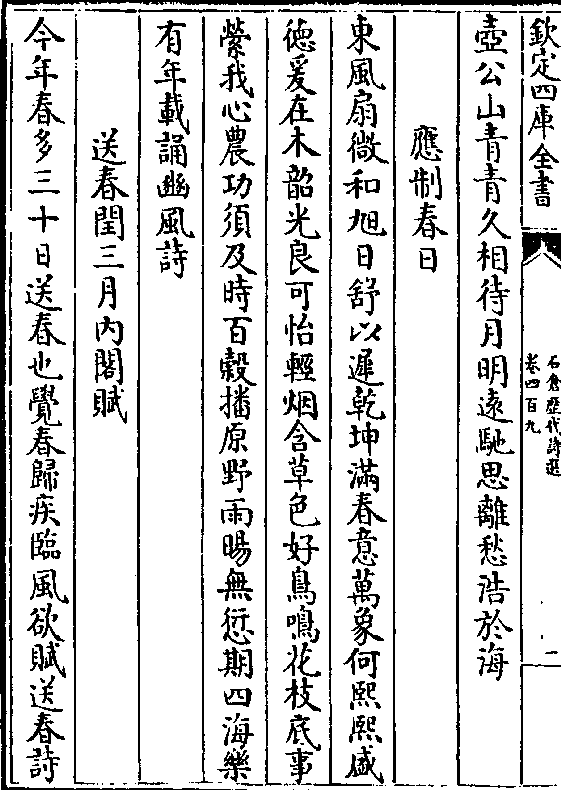 欽定四庫全書
石倉歷代詩選
卷四百九
二
壺公山青青久相待月明遠馳思離愁浩於海
應制春日
東風扇微和旭日舒以遲乾坤滿春意萬象何熙熙盛
德爰在木韶光良可怡輕烟含草色好鳥鳴花枝底事
縈我心農功須及時百榖播原野雨暘無愆期四海樂
有年載誦豳風詩
送春閏三月内閣賦
今年春多三十日送春也覺春歸疾臨風欲賦送春詩